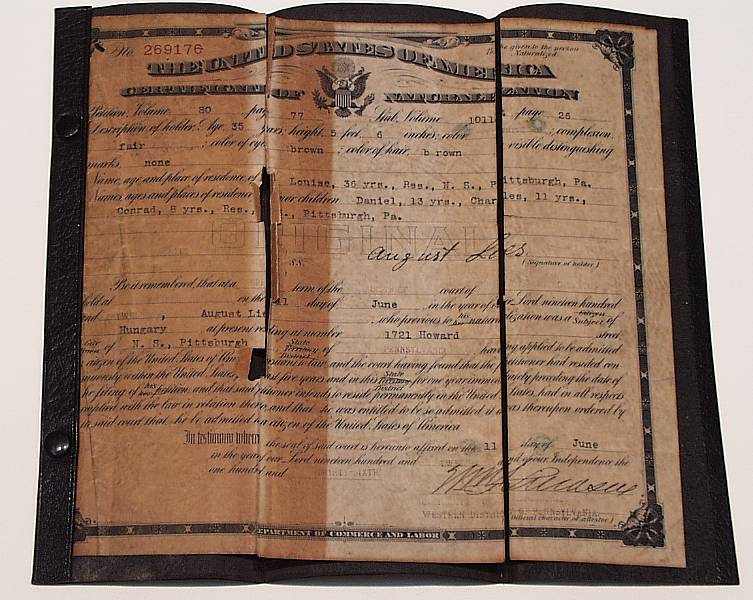 No. 269176
To be given to the person Naturalized.
THE UNITED STATES OF AMERICA
CERTIFICATE OF NATURALIZATION
Petition, Volume 80 , page 77 Stub, Volume 1011 , page 26
Description of holder: Age, 35 years; height, 5 feet, 6 inches; color ; complexion,
fair ; color of eyes brown ; color of hair, b rown ; visible distinguishing
marks, none
Name, age and place of residence of Louise, 36 yrs., Res., N. S., Pittsburgh, Pa.
Names, ages and places of residence of minor children Daniel, 13 yrs., Charles, 11 yrs.,
Conrad, 8 yrs., Res., Pittsburgh, Pa.
ORIGINAL
August
S.S. (Signature of holder)
Be it remembered, that at a term of the court of
held at on the 11 day of June , in the year of our Lord nineteen hundred
and , August Lie , who previous to his her naturalization was a citizen of Subject of
Hungary at present residing at number 1721 Howard street,
City of N. S., Pittsburgh State Territory of District PENNSYLVANIA having applied to be admitted
a citizen of the United States of America pursuant to law, and the court having found that the petitioner had resided con
tinuously within the United States, least five years and in this State Territory District for one year immediately preceding the date of
the filing of his her petition, and that said petitioner intends to reside permanently in the United States, had in all respects
complied with the law in relation thereto, and that he was entitled to be so admitted, it was thereupon ordered by
the said court that he be admitted as a citizen of the United States of America
In testimony whereof the seal of said court is hereunto affixed on the 11 day of June
in the year of our Lord nineteen hundred and and of our Independence the
one hundred and
WESTERN DISTRICT OF PENNSYLVANIA
(Official character of attestor)
DEPARTMENT OF COMMERCE AND LABOR